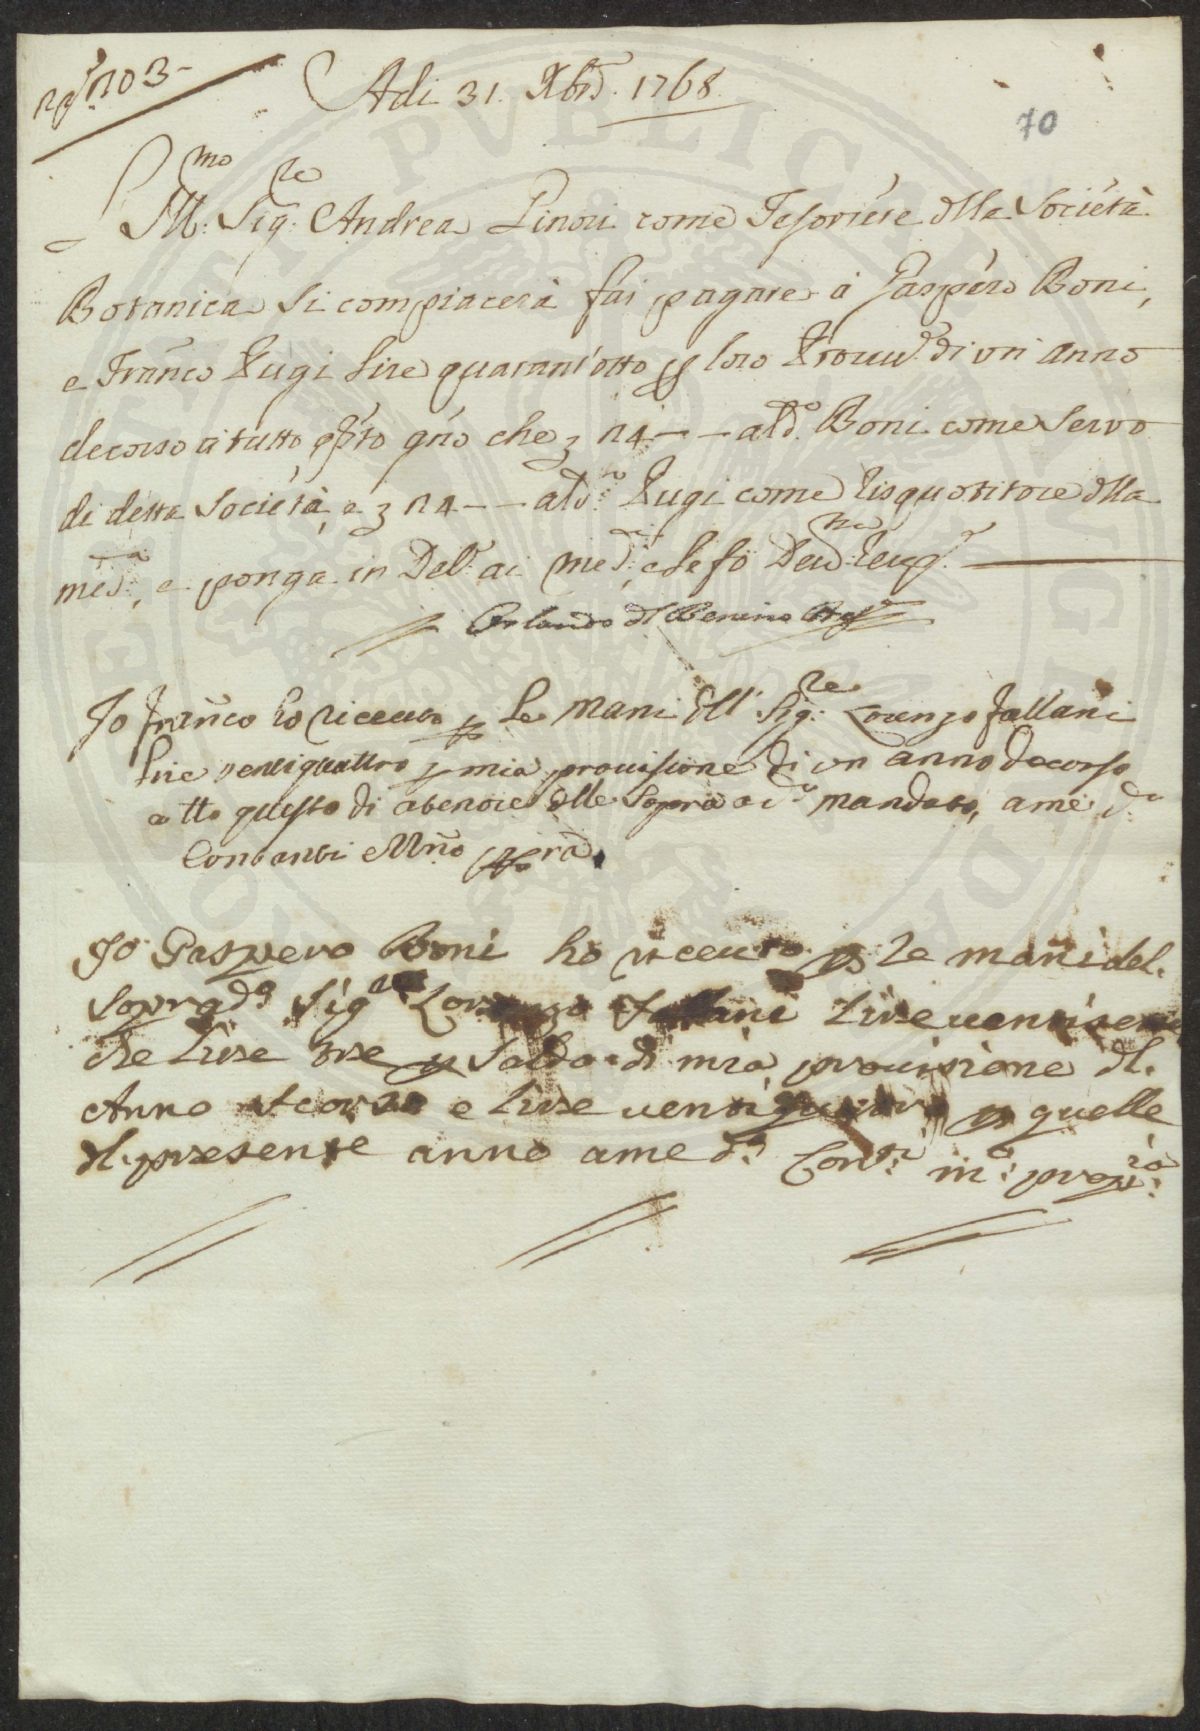 203-
Adi 31. Xbre. 1768.
70
Ill:mo Sig:re Andrea Pinori come Tesoriere dlla Società
Botanica si compiacerà fai pagare à Gaspero Boni,
e Franco Pugi Lire quarant'otto p loro Provvne di un anno
decorso a tutto gno che 24 -- al do Boni come servo
di detta Società, e 24 -- al do Pugi come Risquotitore dlla
med:a, e ponga in Deb. ai med:i,
Orlando dl Benino
Io Franco ho riceuto p le mani dll' Sig:re Lorenzo Fallani
lire ventiquattro p mia provisione di un anno decorso
a tto questo di a tenore dlle sopra mandato, a me d:o
Contanti Mno ppra
Io Gaspero Boni ho riceuto p le mani del.
sopra do Sig.re Lorenzo Fallani Lire uentisette
che Lire tre p saldo di mia prouisione dl.
Anno scorso e Lire uentiquattro p quelle
dl. presente anno a me d:o Con:ti m:o prop:ia